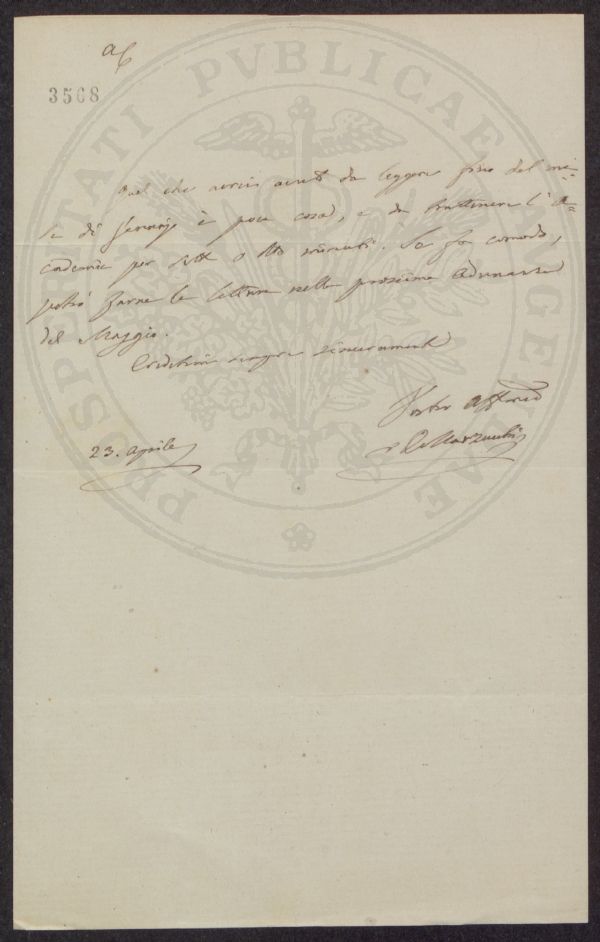 aC
3508
PROSPERITATI PVBLICAE AVGENDAE
Quel che avrei avuto da leggere fino dal me=
se di Gennajo è poca cosa, e da trattenere l'A=
cademia per sette o otto minuti. Se fa comodo,
potrò farne la lettura nella prossima Adunanza
del Maggio.
Credetemi sempre sinceramente
Vostro Affmo
C. De Marzucchi
23. Aprile